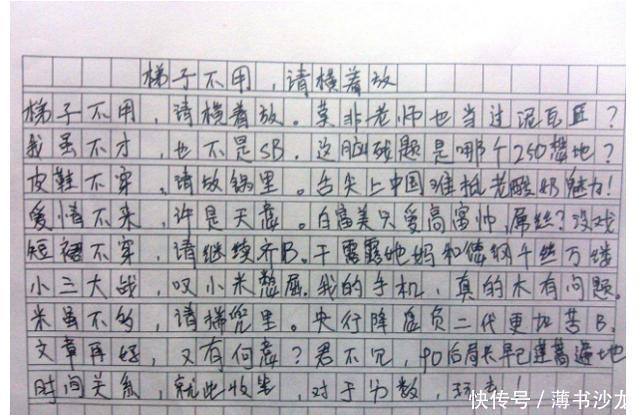 梯子不用，请横着放
梯子不用，请横着放。莫非老师也当过泥瓦匠？
我虽不才，也不是SB。这脑残题是哪个250想地？
皮鞋不穿，请放锅里。舌尖上中国难抵老酸奶魅力！
爱情不来，许是天意。白富美只爱高富帅，屌丝？没戏
短裙不穿，请继续齐B。干露露她妈和德纲千丝万缕
小三大战，叹小米憋屈。我的手机，真的木有问题。
米虽不多，请揣兜里。央行降息负二代更加苦B.
文章再好，又有何意？君不见，90后局长早已遍地
时间关系，就此收笔，对于分数，
快传号／薄书沙龙